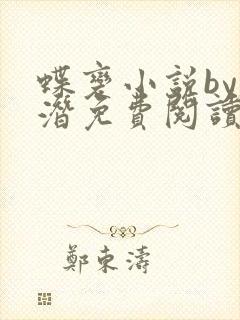 蝶变小说by
潜免費閱讀
鄭東濤